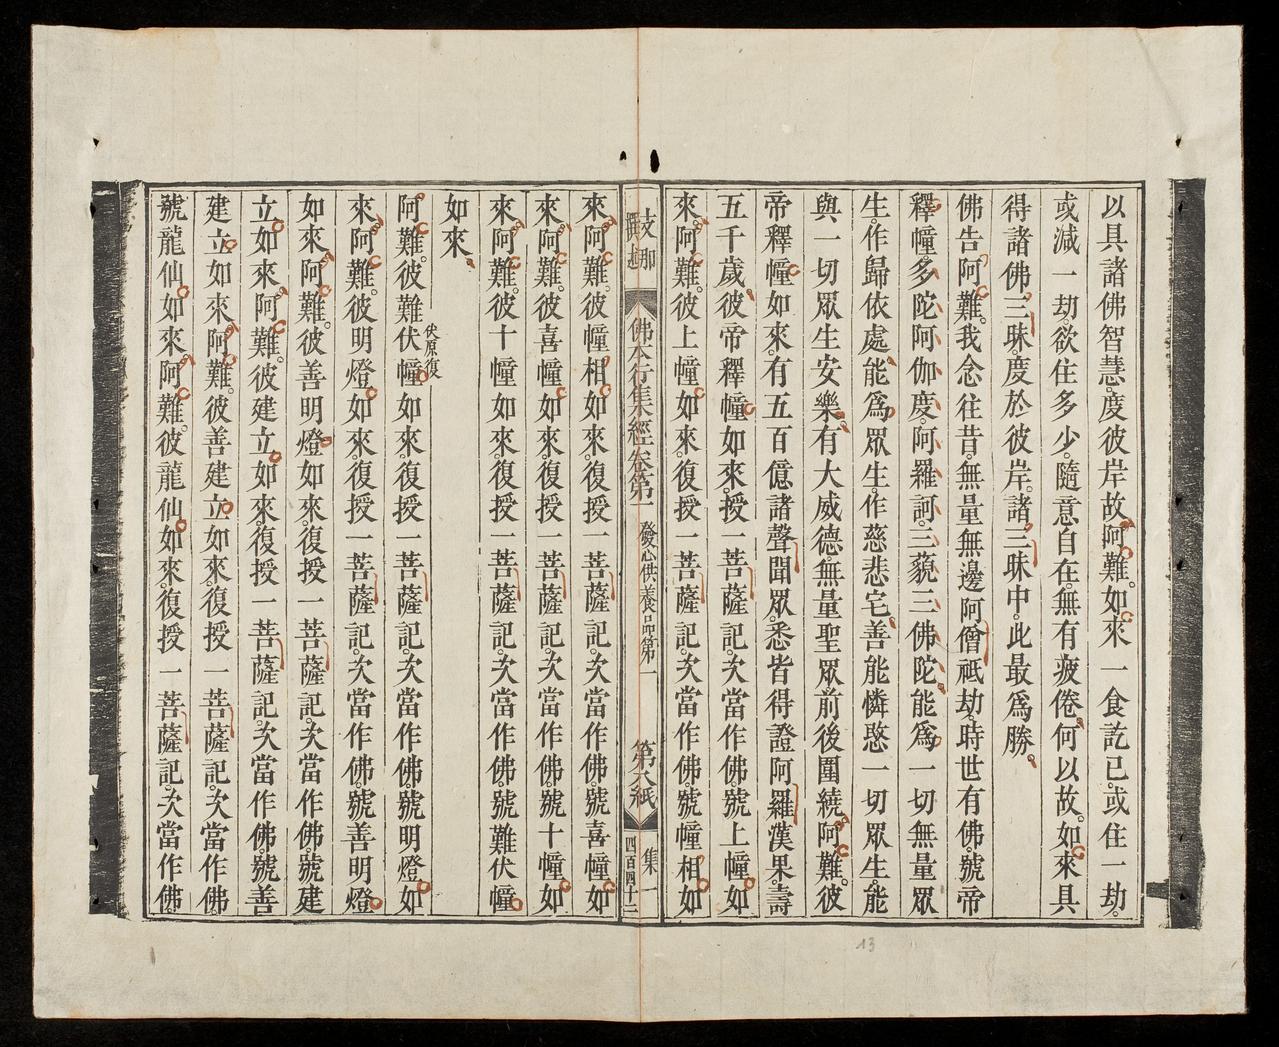 以具諸佛智慧。度彼岸故。阿難。如來一食訖已。或住一劫。
或減一劫。欲住多少。隨意自在。無有疲倦。何以故。如來具
得諸佛。三昧。度於彼岸。諸三昧中。此最爲勝。
佛告阿難。我念往昔。無量無邊阿僧祇劫。時世有佛。號帝
釋幢多陀阿伽度。阿羅訶。三藐三佛陀。能爲一切無量眾
生。作歸依處。能爲眾生。作慈悲宅。善能憐愍一切眾生。能
與一切眾生安樂。有大威德。無量聖眾前後圍繞。阿難。彼
帝釋幢如來。有五百億諸聲聞眾。悉皆得證阿羅漢果。壽
五千歲。彼帝釋幢如來。授一菩薩記。次當作佛。號上幢。如
來。阿難。彼上幢。如來。復授一菩薩記。次當作佛。號幢相。如
支那
撰述
佛本行集經卷第一 發心供養品第一 第八紙 集一
四百四十二
來。阿難。彼幢相。如來。復授一菩薩記。次當作佛。號喜幢。如
來。阿難。彼喜幢。如來。復授一菩薩記。次當作佛。號十幢。如
來。阿難。彼十幢如來。復授一菩薩記。次當作佛。號難伏幢
如來。
伏原復
阿難。彼難伏幢。如來。復授一菩薩記。次當作佛。號明燈。如
來。阿難。彼明燈。如來。復授一菩薩記。次當作佛。號善明燈。
如來。阿難。彼善明燈如來。復授一菩薩記。次當作佛。號建
立。如來。阿難。彼建立。如來。復授一菩薩記。次當作佛。號善
建立如來。阿難。彼善建立如來。復授一菩薩記。次當作佛。
號龍仙。如來。阿難。彼龍仙。如來。復授一菩薩記。次當作佛。
13